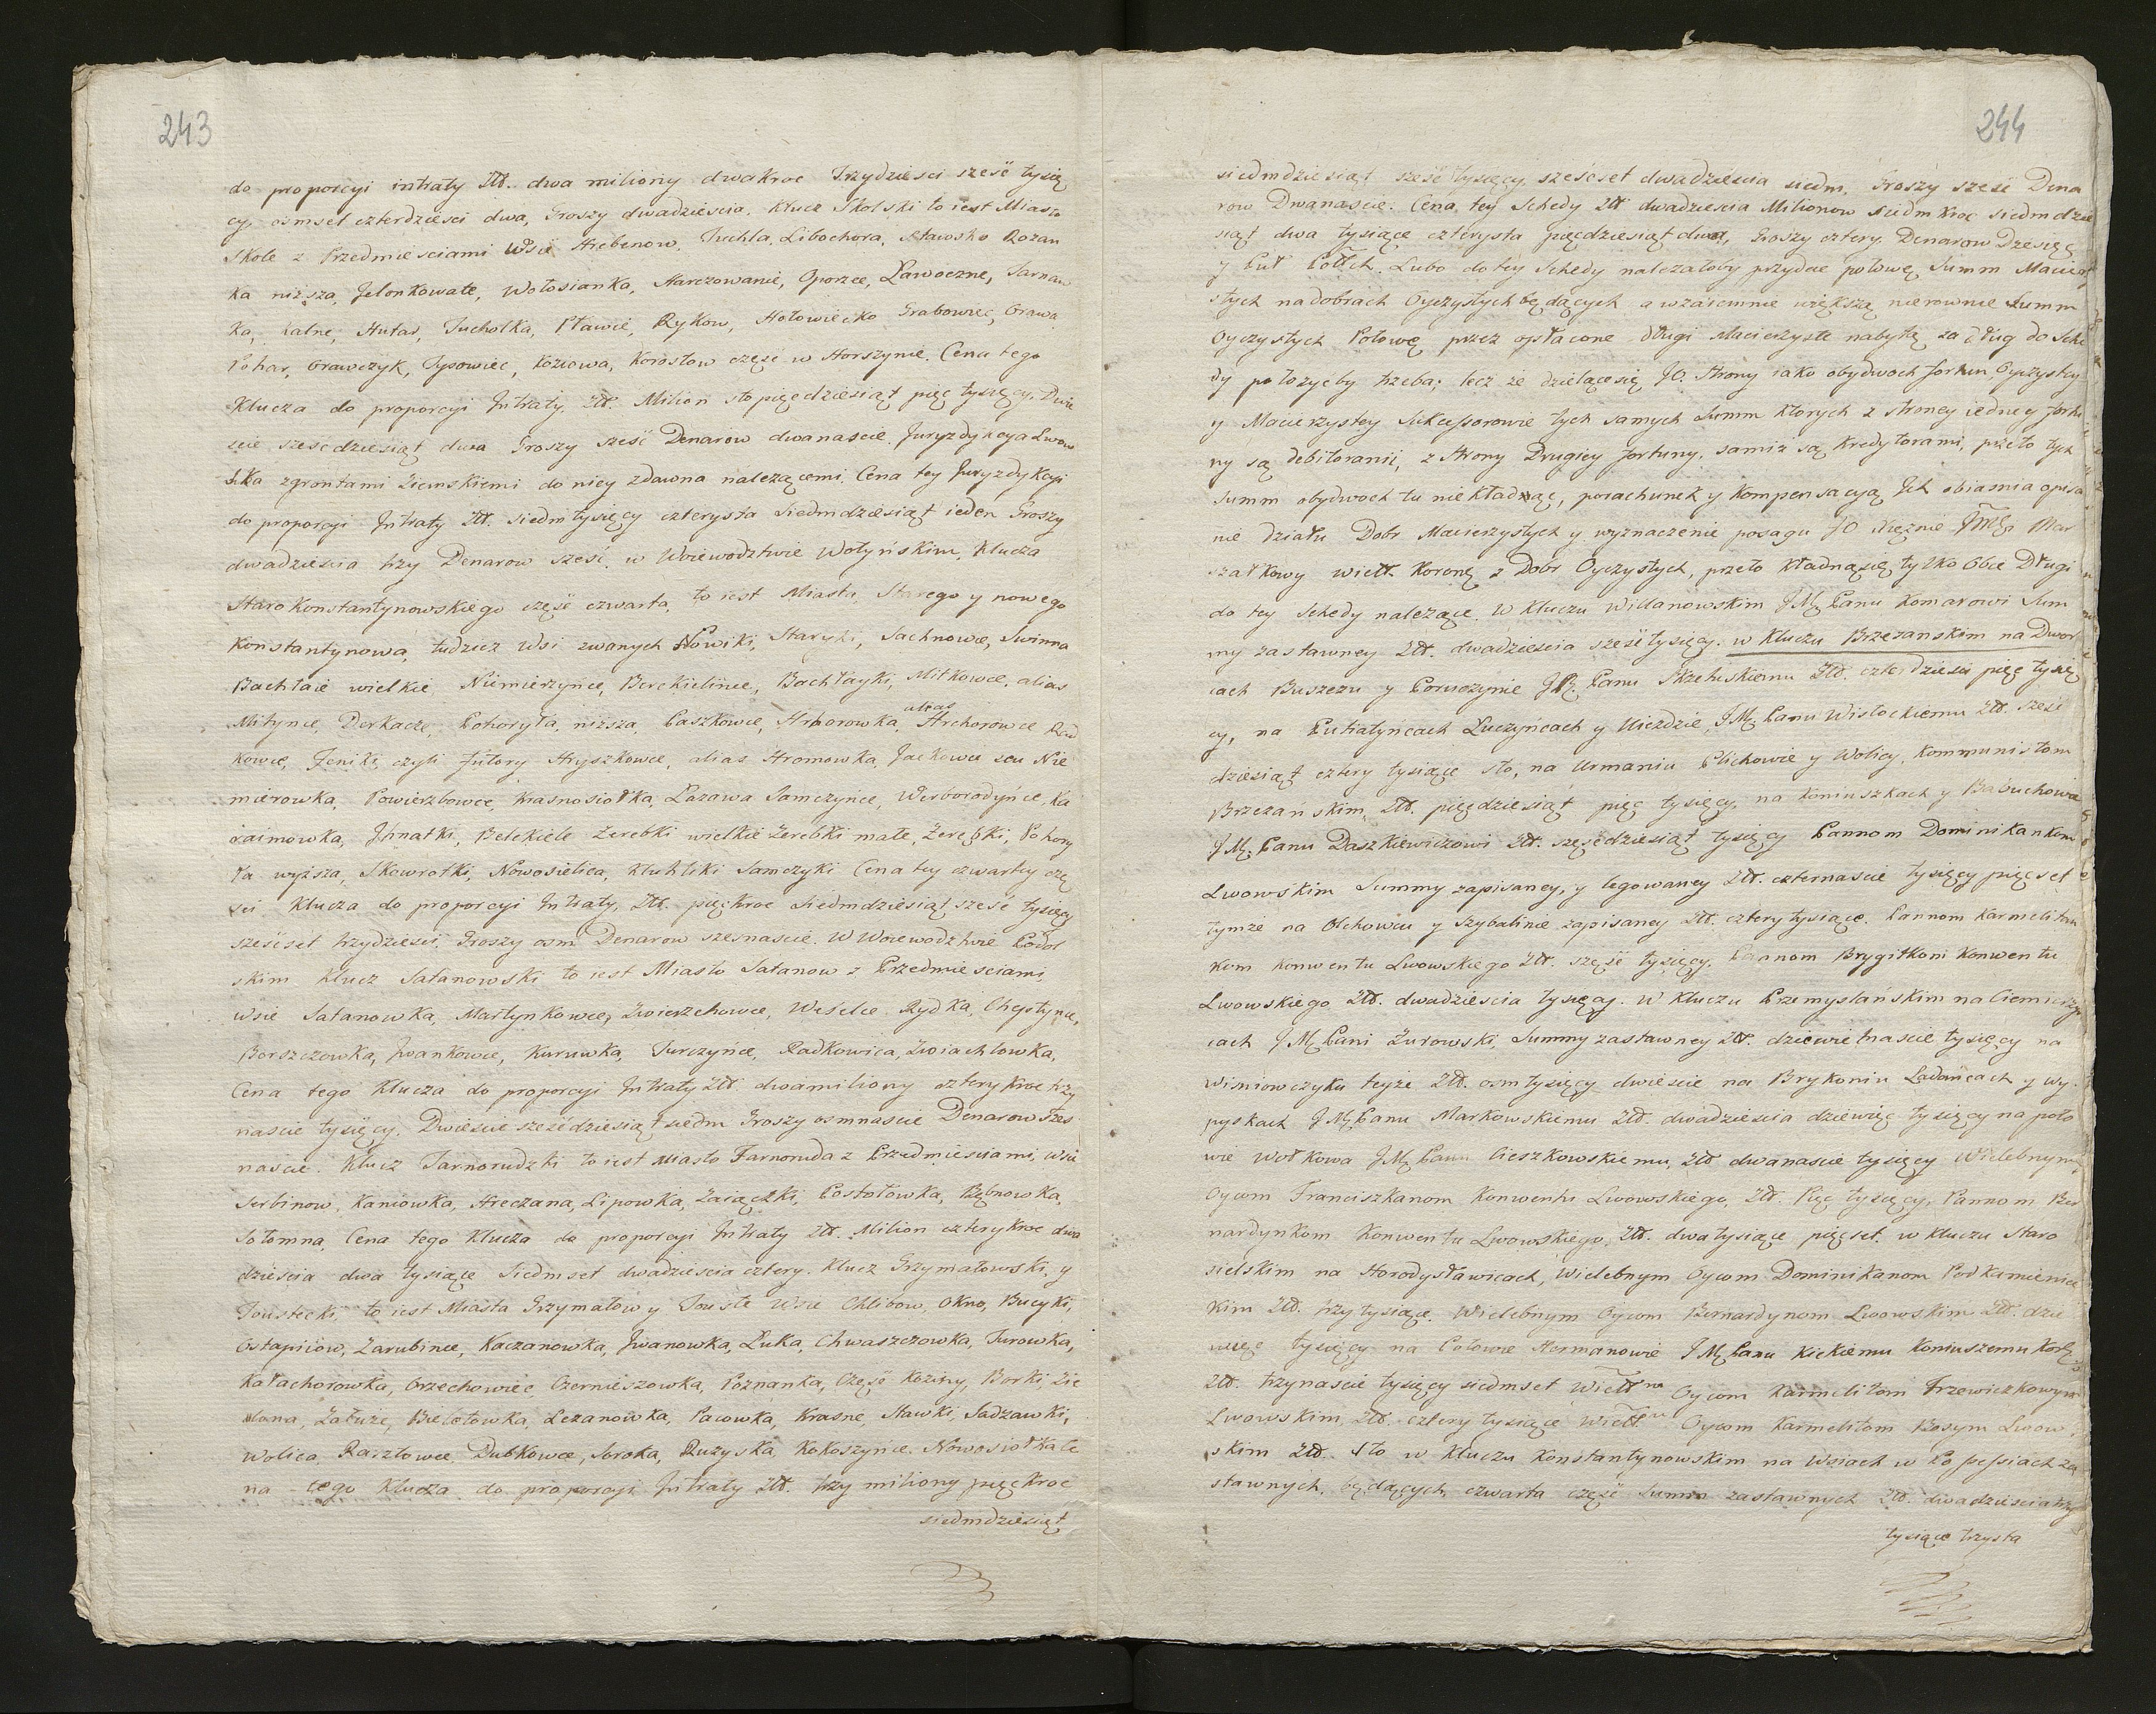 243
do proporcyi intraty Złł. dwa miliony dwakroc Trzydziesci sześć tysię
cy, osmset czterdziesci dwa, Groszy dwadziescia. Klucz Skolski to iest Miasto
Skole z Przedmiesciami Wsie Hrebenow, Tuchla, Libochora, Sławsko Rozan
ka niższa, Jelonkowate, Wołosianka, Oporzec, Ławoczne, Tarnaw
ka, Kalne, Hutar, Tucholka, Pławie, Rykow, Hołowiecko Grabowiec, Orawa
Pohar, Orawczyk, Tysowiec, Koziowa, Korostow częsc w Horszynie. Cena tego
Klucza do proporcyi Intraty Złł. Milion sto pięcdziesiąt pięc tysięcy Dwie
scie szescdziesiąt dwa Groszy sześć Denarow dwanascie. Juryzdykcya Lwow
ska zgrontami Ziemskiemi do niey zdawna należącemi. Cena tey Juryzdykcyi
do proporcyi Intraty Złł. siedm tysięcy czterysta siedmdziesiąt ieden Groszy
dwadziescia trzy Denarow sześć. w Woiewodztwie Wołyńskim, Klucza
Staro Konstantynowskiego częsć czwarta, to iest Miasta Starego y nowego
Konstantynowa, tudzież Wsi zwanych Nowiki, Staryki, Sachnowce, Swinna
Bachłaie wielkie Niemierzyńce, Berekielince, Bachłayki, Mitkowce, alias
Mitynce, Derkacze, Pohoryła, niższa, Paszkowce, Hrborowka, alias Hrehorowce Rad
kowce, Jeniki czyli Futory Hryszkowce, alias Hromowka, Jackowce seu Nie
mierowka, Powierzbowce, Krasnosiołka, Łazawa Samczyńce, Werborodyńce, Ka
raimowka, Jhnatki, Belekiele Zerebki wielkie Żerebki małe, Żerebki, Pohory
ła wyższa, Skowrotki, Nowosielica, Samczyki Cena tey czwartey czę
sci Klucza do proporcyi Intraty, Złł. pięckroc siedmdziesiąt sześć tysięcy
sześcset trzydziesci, Groszy osm Denarow szesnascie. W Woiewodztwie Podol
skim Klucz Satanowski to iest Miasto Satanow z Przedmiesciami,
Wsie Satanowka, Martynkowce, Zwierzchowce, Wesełce Rydka, Chęstynce,
Borszczowka, Jwankowce, Kurowka, Jurczyńce, Radkowica, Zwiachlowka,
Cena tego Klucza do proporcyi Intraty Złł dwamiliony czterykroc trzy
nascie tysięcy, Dwiescie szescdziesiąt siedm Groszy osmnascie Denarow szes
nascie. Klucz Tarnorudzki to iest Miasto Tarnoruda z Przedmiesciami, Wsie
Serbinow, Kaniowka, Hreczana, Lipowka, Zaiączki, Postołowka, Rębnowka,
Sołomna, Cena tego Klucza do proporcyi Intraty Złł. Milion czterykroc dwa
dziescia dwa tysiące siedmset dwadziescia cztery. Klucz Grzymałowski, y
Toustecki, to iest Miasta Grzymałow y Touste Wsie Chlibow, Okno, Bucyki,
Ostapiiow, Zarubince, Kaczanowka, Jwanowka, Łuka, Chwaszczowka, Turowka,
Kałachorowka, Orzechowiec Czernieszowka, Poznanka, Częsć Koziny, Borki, Zie
lona, Załuże, Biełotowka, Lezanowka, Pacowka Krasne, Stawki, Sadzawki,
Wolica, Rasztowce Dubkowce, Soroka, Rużyska, Kokoszyńce. Nowosiołka Ce
na tego Klucza do proporcyi Intraty Złł. trzy miliony pięckroc
siedmdziesiąt
244
siedmdziesiąt sześć tysięcy, sześćset dwadziescia siedm. Groszy sześć Dena
row Dwanascie. Cena tey Schedy Złł dwadziescia Milionow siedmkroc siedmdzie
siąt dwa tysiące czterysta pięcdziesiąt dwa, Groszy cztery. Denarow Dzesięc
y Puł Polłch. Lubo do tey Schedy należałoby przydac połowę Summ Macierzy
stych na dobrach Oyczystych będących a wzaiemnie większą nierownie summ
Oyczystych Połowę przez opłacone długi Macierzyste nabytą za dług do Sche
dy położycby trzeba; lecz że dzielące się JO. Strony iako obydwoch Fortun Oyczystey
y Macierzystey Sukcessorowie tych samych Summ ktorych z strony iedney Fortu
ny są debitorami, z Strony Drugiey Fortuny, samiż są kredytorami, przeto tych
Summ obydwoch tu niekładnąc, porachunek y Kompensacyą Jch obiasnia opisa
nie działu Dobr Macierzystych y wyznaczenie posagu JO Xiężnie JMci Mar
szałkowy wielk. Koronę z Dobr Oyczystych, przeto kładnąsię tylko Obce Długi
do tey Schedy należące. W Kluczu Willanowskim JMę Panu Komarowi Sum
my zastawney Złł. dwadziescia sześć tysięcy. w Kluczu Brzezanskim na Dwor
cach Buszczu y Poruczynie JP. Panu Strzeluskiemu Złł. czterdziesci pięc tysię
cy, na Putiatyńcach Luczyńcach y Uieździe, JMę Panu Wisłockiemu Złł. sześć
dziesiąt cztery tysiące sto, na Urmaniu Plichowie y Wolicy, Kommunistom
Brzezańskim, Złł. pięcdziesiąt pięc tysięcy, na Koniuszkach y Babuchowie
JMę. Panu Daszkiewiczowi Złł. szęscdziesiąt tysięcy Pannom Dominikankom
Lwowskim Summy zapisaney, y legowaney Złł. czternascie tysięcy pięcset
tymże na Olchowcu y Szybalinie zapisaney Złł. cztery tysiące. Pannom Karmelitan
kom konwentu Lwowskiego Złł. szęsć tysięcy. Pannom Brygitkom Konwentu
Lwowskiego Złł. dwadziescia tysięcy. W Kluczu Przemyslańskim na Ciemierzyn
cach JMę Pani Żurowski, Summy zastawney Złł. dziewiętnascie tysięcy na
Wisniowczyku teyże Złł. osm tysięcy dwiescie na Brykoniu Ladańcach y Wy
pyskach JMę Panu Markowskiemu Złł. dwadziescia dziewięc tysięcy na poło
wie Wołkowa JMę Panu Cieszkowskiemu, Złł dwanascie tysięcy Wielebnym
Oycom Franciszkanom Konwentu Lwowskiego, Złł. Pięc tysięcy, Pannom Ber
nardynkom Konwentu Lwowskiego, Złł. dwa tysiące pięcset. w Kluczu Staro
sielskim na Horodysławicach, Wielebnym Oycom Dominikanom Podkamienie
kim Złł. trzy tysiące. Wielebnym Oycom Bernardynom Lwowskim Złł. dzie
więc tysięcy na Połowie Hermanowie JMę Panu Kickiemu Koniuszemu Kor
Złł. trzynascie tysięcy siedmset Wielł na Oycom Karmelitom Trzewiczkowym
Lwowskim, Złł. cztery tysiące, Wielł Oycom Karmelitom Bosym Lwow
skim Złł. Sto w Kluczu Konstantynowskim na Wsiach w Possessiach za
stawnych będących, czwarta częsć Summ zastawnych Złł. dwadziescia trzy
tysiące trzysta